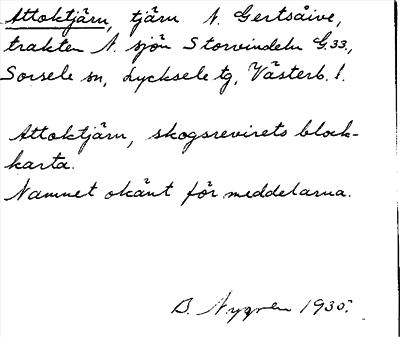 Attoktjärn, tjärn N. Gertsåive,
trakten N. sjön Storvindeln G.33.,
Sorsele sn, Lycksele tg, Västerb. l.
Attoktjärn, skogsrevirets block-
karta.
Namnet okänt för meddelarna.
B. Nygren 1930.